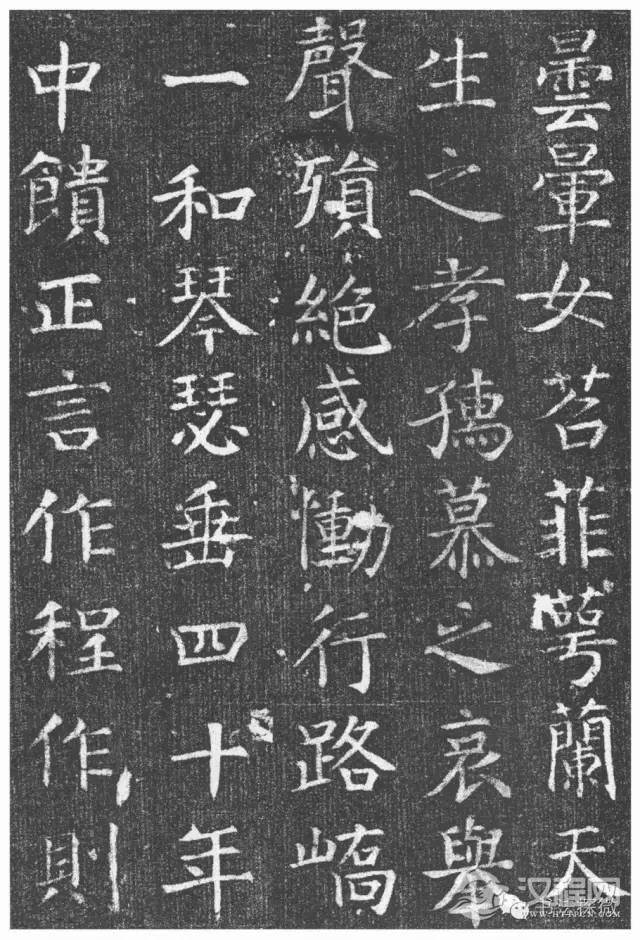 曇暈女苕菲萼蘭天
生之孝孺慕之哀舉
聲殞絶感慟行路嶠
一和琴瑟垂四十年
中饋正言作程作則
汉程网
WWW.HTTPCN.COM